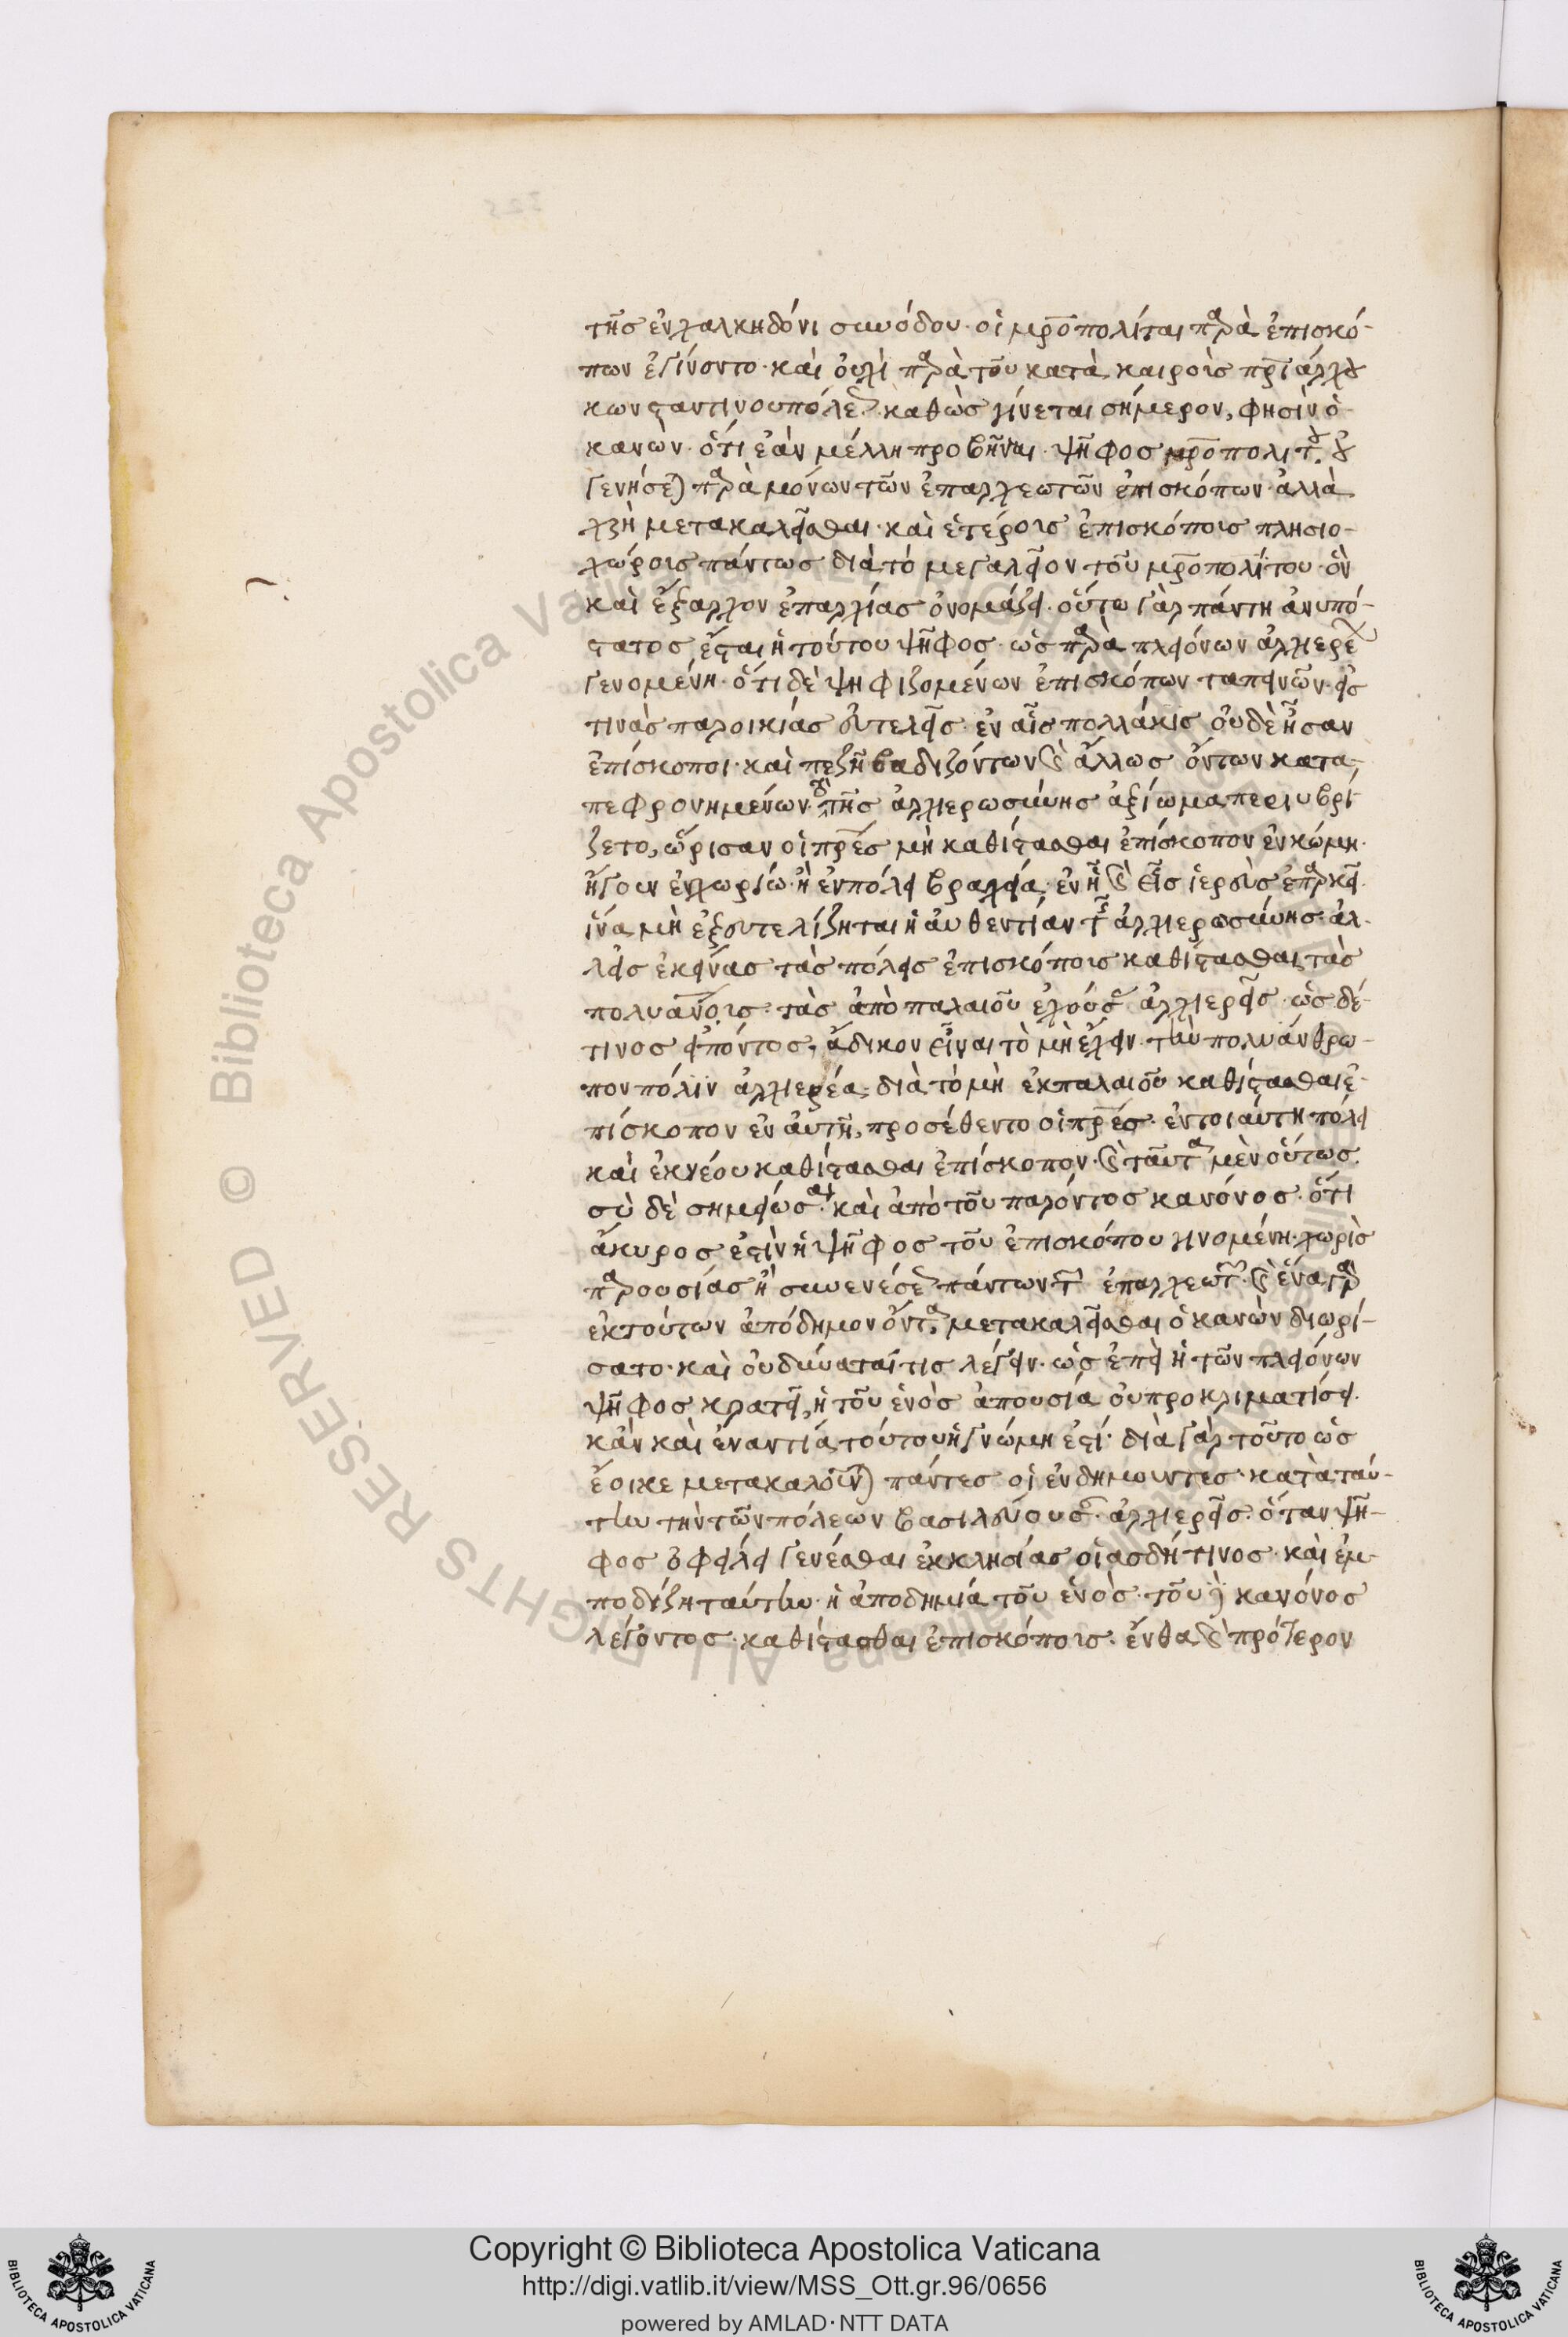 τῆς ἐν χαλκηδόνι συνόδου· οἱ μρ̅οπολίται παρὰ ἐπισκό-
πων ἐγίνοντο· καὶ οὐχὶ παρὰ τοῦ κατὰ καιροὺς πρ̅ιάρχου
κωνσταντινουπόλεως· καθὼς γίνεται σήμερον, φησὶν ὁ
κανών· ὅτι ἐὰν μέλλη προβῆναι· ψῆφος μρ̅οπολίτου· οὐ
γενήσεται παρὰ μόνων τῶν ἐπαρχεωτῶν ἐπισκόπων· ἀλλὰ
χρὴ μετακαλεῖσθαι· καὶ ἑτέρους ἐπισκόπους πλησιο-
χώρους πάντως διὰ τὸ μεγαλεῖον τοῦ μρ̅οπολίτου· ὃν
καὶ ἔξαρχον ἐπαρχίας ὀνομάζει· οὕτω γὰρ πάντη ἀνυπό-
στατος ἔσται ἡ τούτου ψῆφος· ὡς παρὰ πλειόνων ἀρχιερέων
γενομένη· ὅτι δὲ ψηφιζομένων ἐπισκόπων ταπεινῶν· εἰς
τινὰς παροικίας εὐτελεῖς· ἐν αἷς πολλάκις οὐδὲ ἦσαν
ἐπίσκοποι· καὶ πεζῆ βαδιζόντων καὶ ἄλλως ὄντων κατα-
πεφρονημένων τὸ τῆς ἀρχιερωσύνης ἀξίωμα περιυβρί-
ζετο, ὥρισαν οἱ πρ̅ες μὴ καθίστασθαι ἐπίσκοπον ἐν κώμη·
ἤγουν ἐν χωρίω· ἢ ἐν πόλει βραχεία· ἐν ἧ καὶ εἷς ἱερεὺς ἐπαρκεῖ·
ἵνα μὴ ἐξευτελίζηται ἡ αὐθεντίαν τῆς ἀρχιερωσύνης· ἀλ-
λ' εἰς ἐκείνας τὰς πόλεις ἐπισκόπους καθίστασθαι, τὰς
πολυάν̅ους· τὰς ἀπὸ παλαιοῦ ἐχούσας ἀρχιερεῖς· ὡς δέ-
τινος εἰπόντος, ἄδικον εἶναι τὸ μὴ ἔχειν· τὴν πολυάνθρω-
πον πόλιν ἀρχιερέα· διὰ τὸ μὴ ἐκ παλαιοῦ καθίστασθαι ἐ-
πίσκοπον ἐν αὐτῆ, προσέθεντο οἱ πρ̅ες· ἐν τοιαύτη πόλει
καὶ ἐκ νέου καθίστασθαι ἐπίσκοπον· καὶ ταῦτα μὲν οὕτως·
σὺ δὲ σημείωσαι· καὶ ἀπὸ τοῦ παρόντος κανόνος· ὅτι
ἄκυρος ἐστὶν ἡ ψῆφος τοῦ ἐπισκόπου γινομένη· χωρὶς
παρουσίας ἢ συνενέσεως πάντων τῶν ἐπαρχεωτῶν· καὶ ἕνα γὰρ
ἐκ τούτων ἀπόδημον ὄντα, μετακαλεῖσθαι ὁ κανὼν διωρί-
σατο· καὶ οὐ δύναταί τις λέγειν· ὡς ἐπεὶ ἡ τῶν πλειόνων
ψῆφος κρατεῖ, ἡ τοῦ ἑνὸς ἀπουσία οὐ προκριματίσει·
κἂν καὶ ἐναντία τούτου ἡ γνώμη ἐστί· διὰ γὰρ τοῦτο ὡς
ἔοικε μετακαλοῦνται πάντες οἱ ἐνδημοῦντες· κατὰ ταύ-
την τὴν τῶν πόλεων βασιλεύουσαν· ἀρχιερεῖς· ὅταν ψῆ-
φος ὀφείλει γενέσθαι ἐκκλησίας οἱασδήτινος· καὶ ἐμ-
ποδίζη ταύτην· ἡ ἀποδημία τοῦ ἑνός· τοῦ κανόνος
λέγοντος· καθίστασθαι ἐπισκόπους· ἔνθα καὶ πρότερον
Copyright © Biblioteca Apostolica Vaticana
http://digi.vatlib.it/view/MSS_Ott.gr.96/0656
powered by AMLAD·NTT DATA